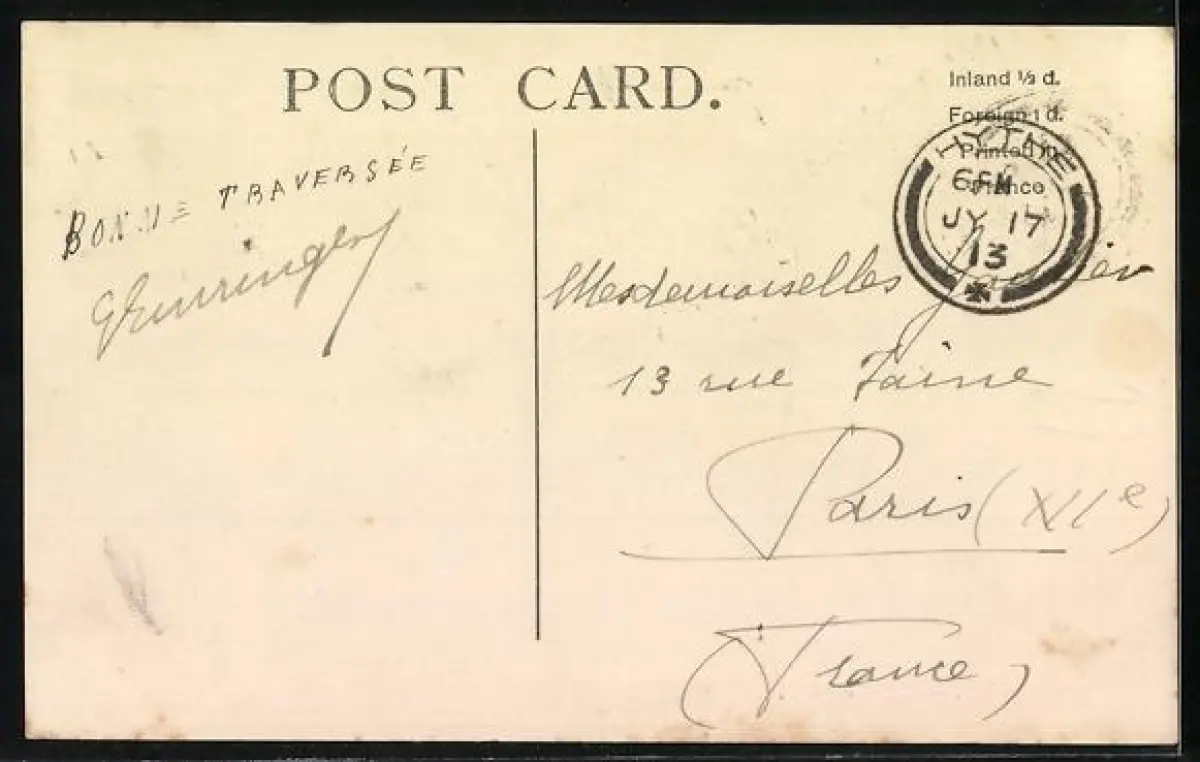 POST CARD.
Inland ½ d.
Foreign 1 d.
Printed in
France
HYTHE
6 PM
JY 17
13
BONNE TRAVERSÉE
Mesdemoiselles
13 rue Taine
Paris (XIIe)
(France)